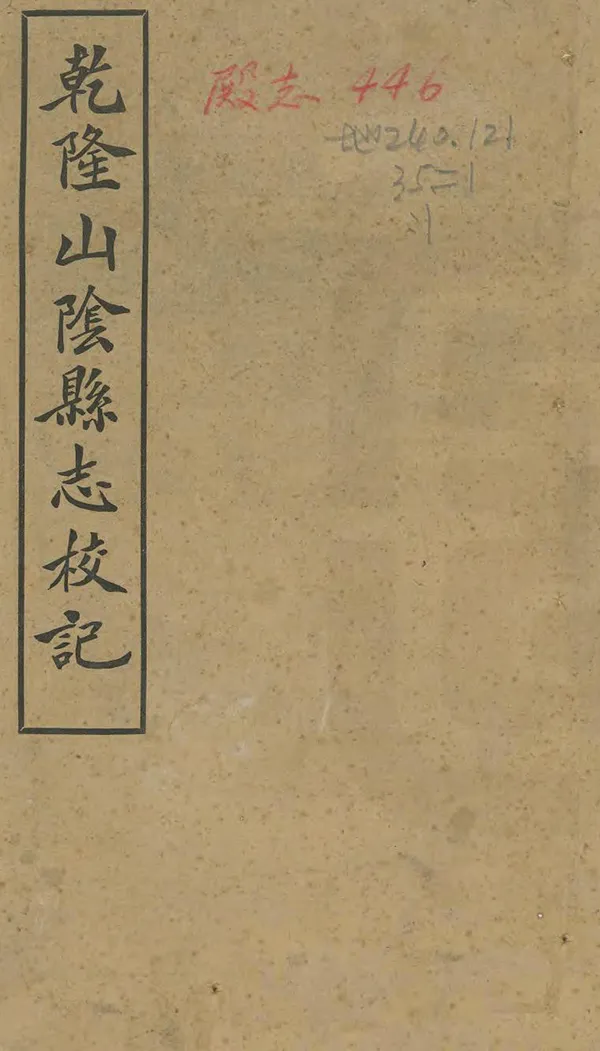 乾隆山陰縣志校記
殿志 446
地240.121
35=1
:1